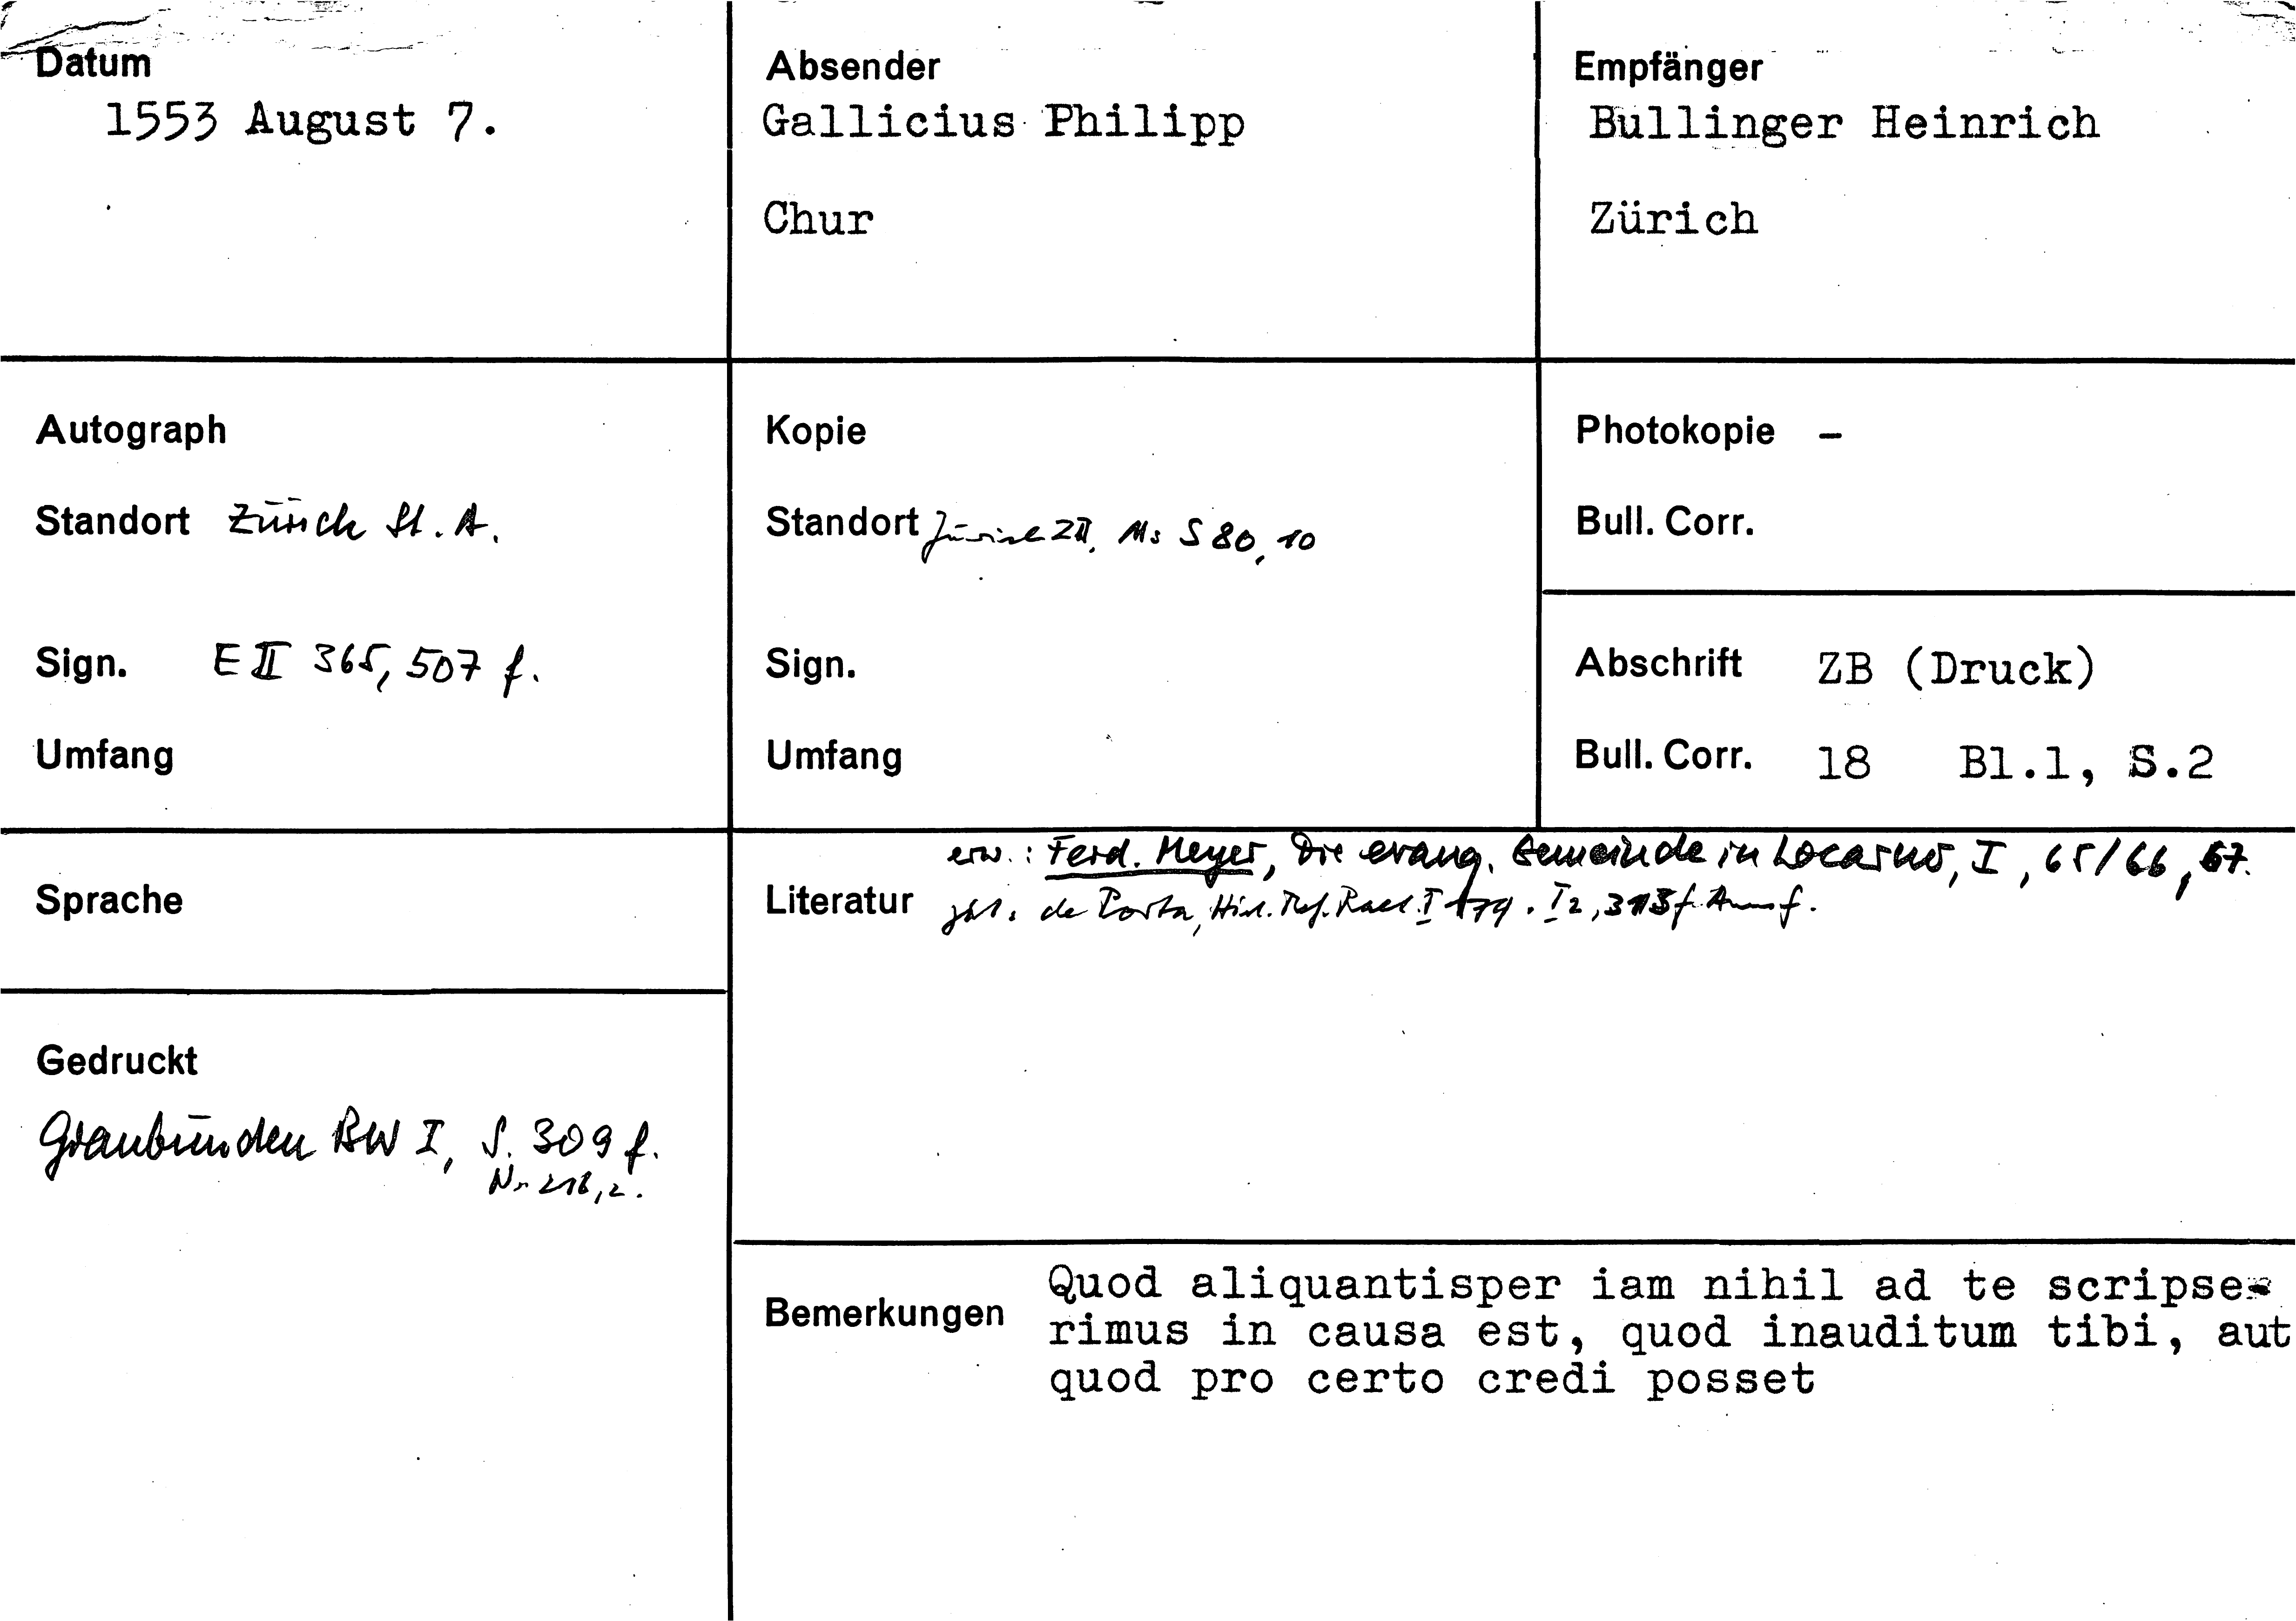 Datum
1553 August 7.
Absender
Gallicius Philipp
Chur
Empfänger
Bullinger Heinrich
Zürich
Autograph
Standort Zürich St. A.
Sign. E II 365, 507 f.
Umfang
Kopie
Standort Zürich ZB, Ms S 80, 10
Sign.
Umfang
Photokopie –
Bull. Corr.
Abschrift ZB (Druck)
Bull. Corr. 18 Bl.1, S.2
Sprache
erw.: Ferd. Meyer, Die evang. Gemeinde in Locarno, I, 65/66, 67.
Literatur de Porta, Hist. Ref. Raet. I 179. I2, 313 f.
Gedruckt
Graubünden BW I, S. 309 f.
Nr 216,2.
Bemerkungen
Quod aliquantisper iam nihil ad te scripse-
rimus in causa est, quod inauditum tibi, aut
quod pro certo credi posset